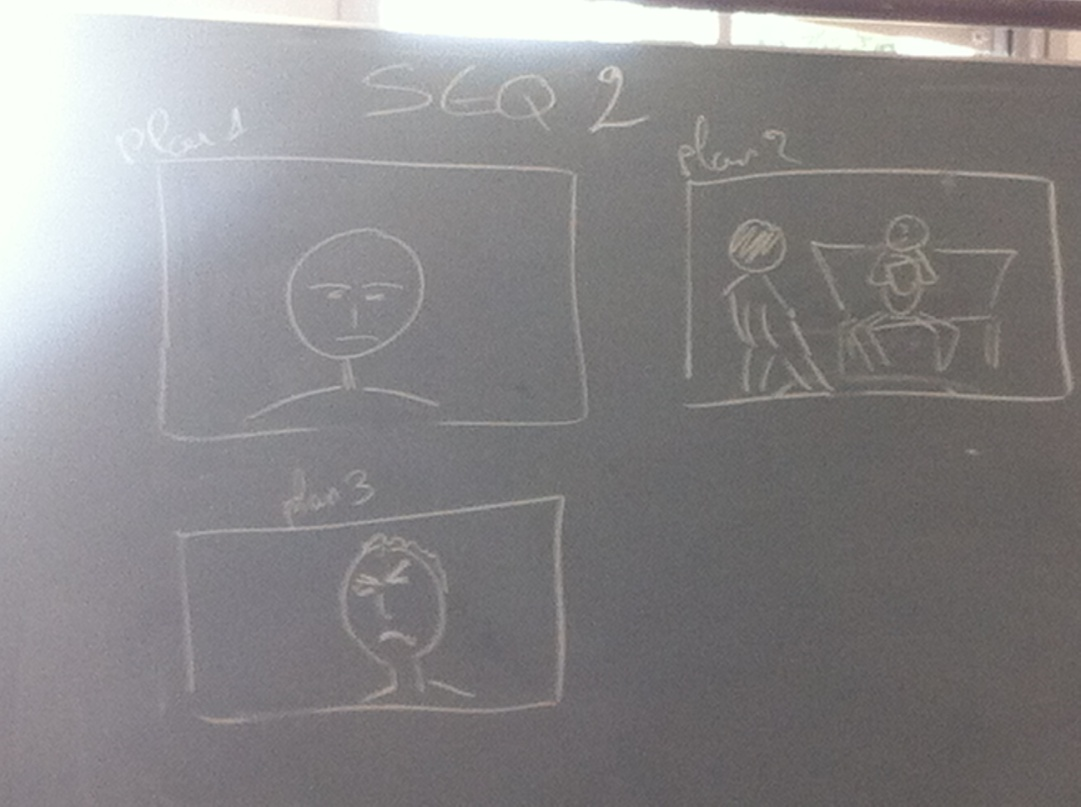 SEQ 2
plan 1
plan 2
plan 3